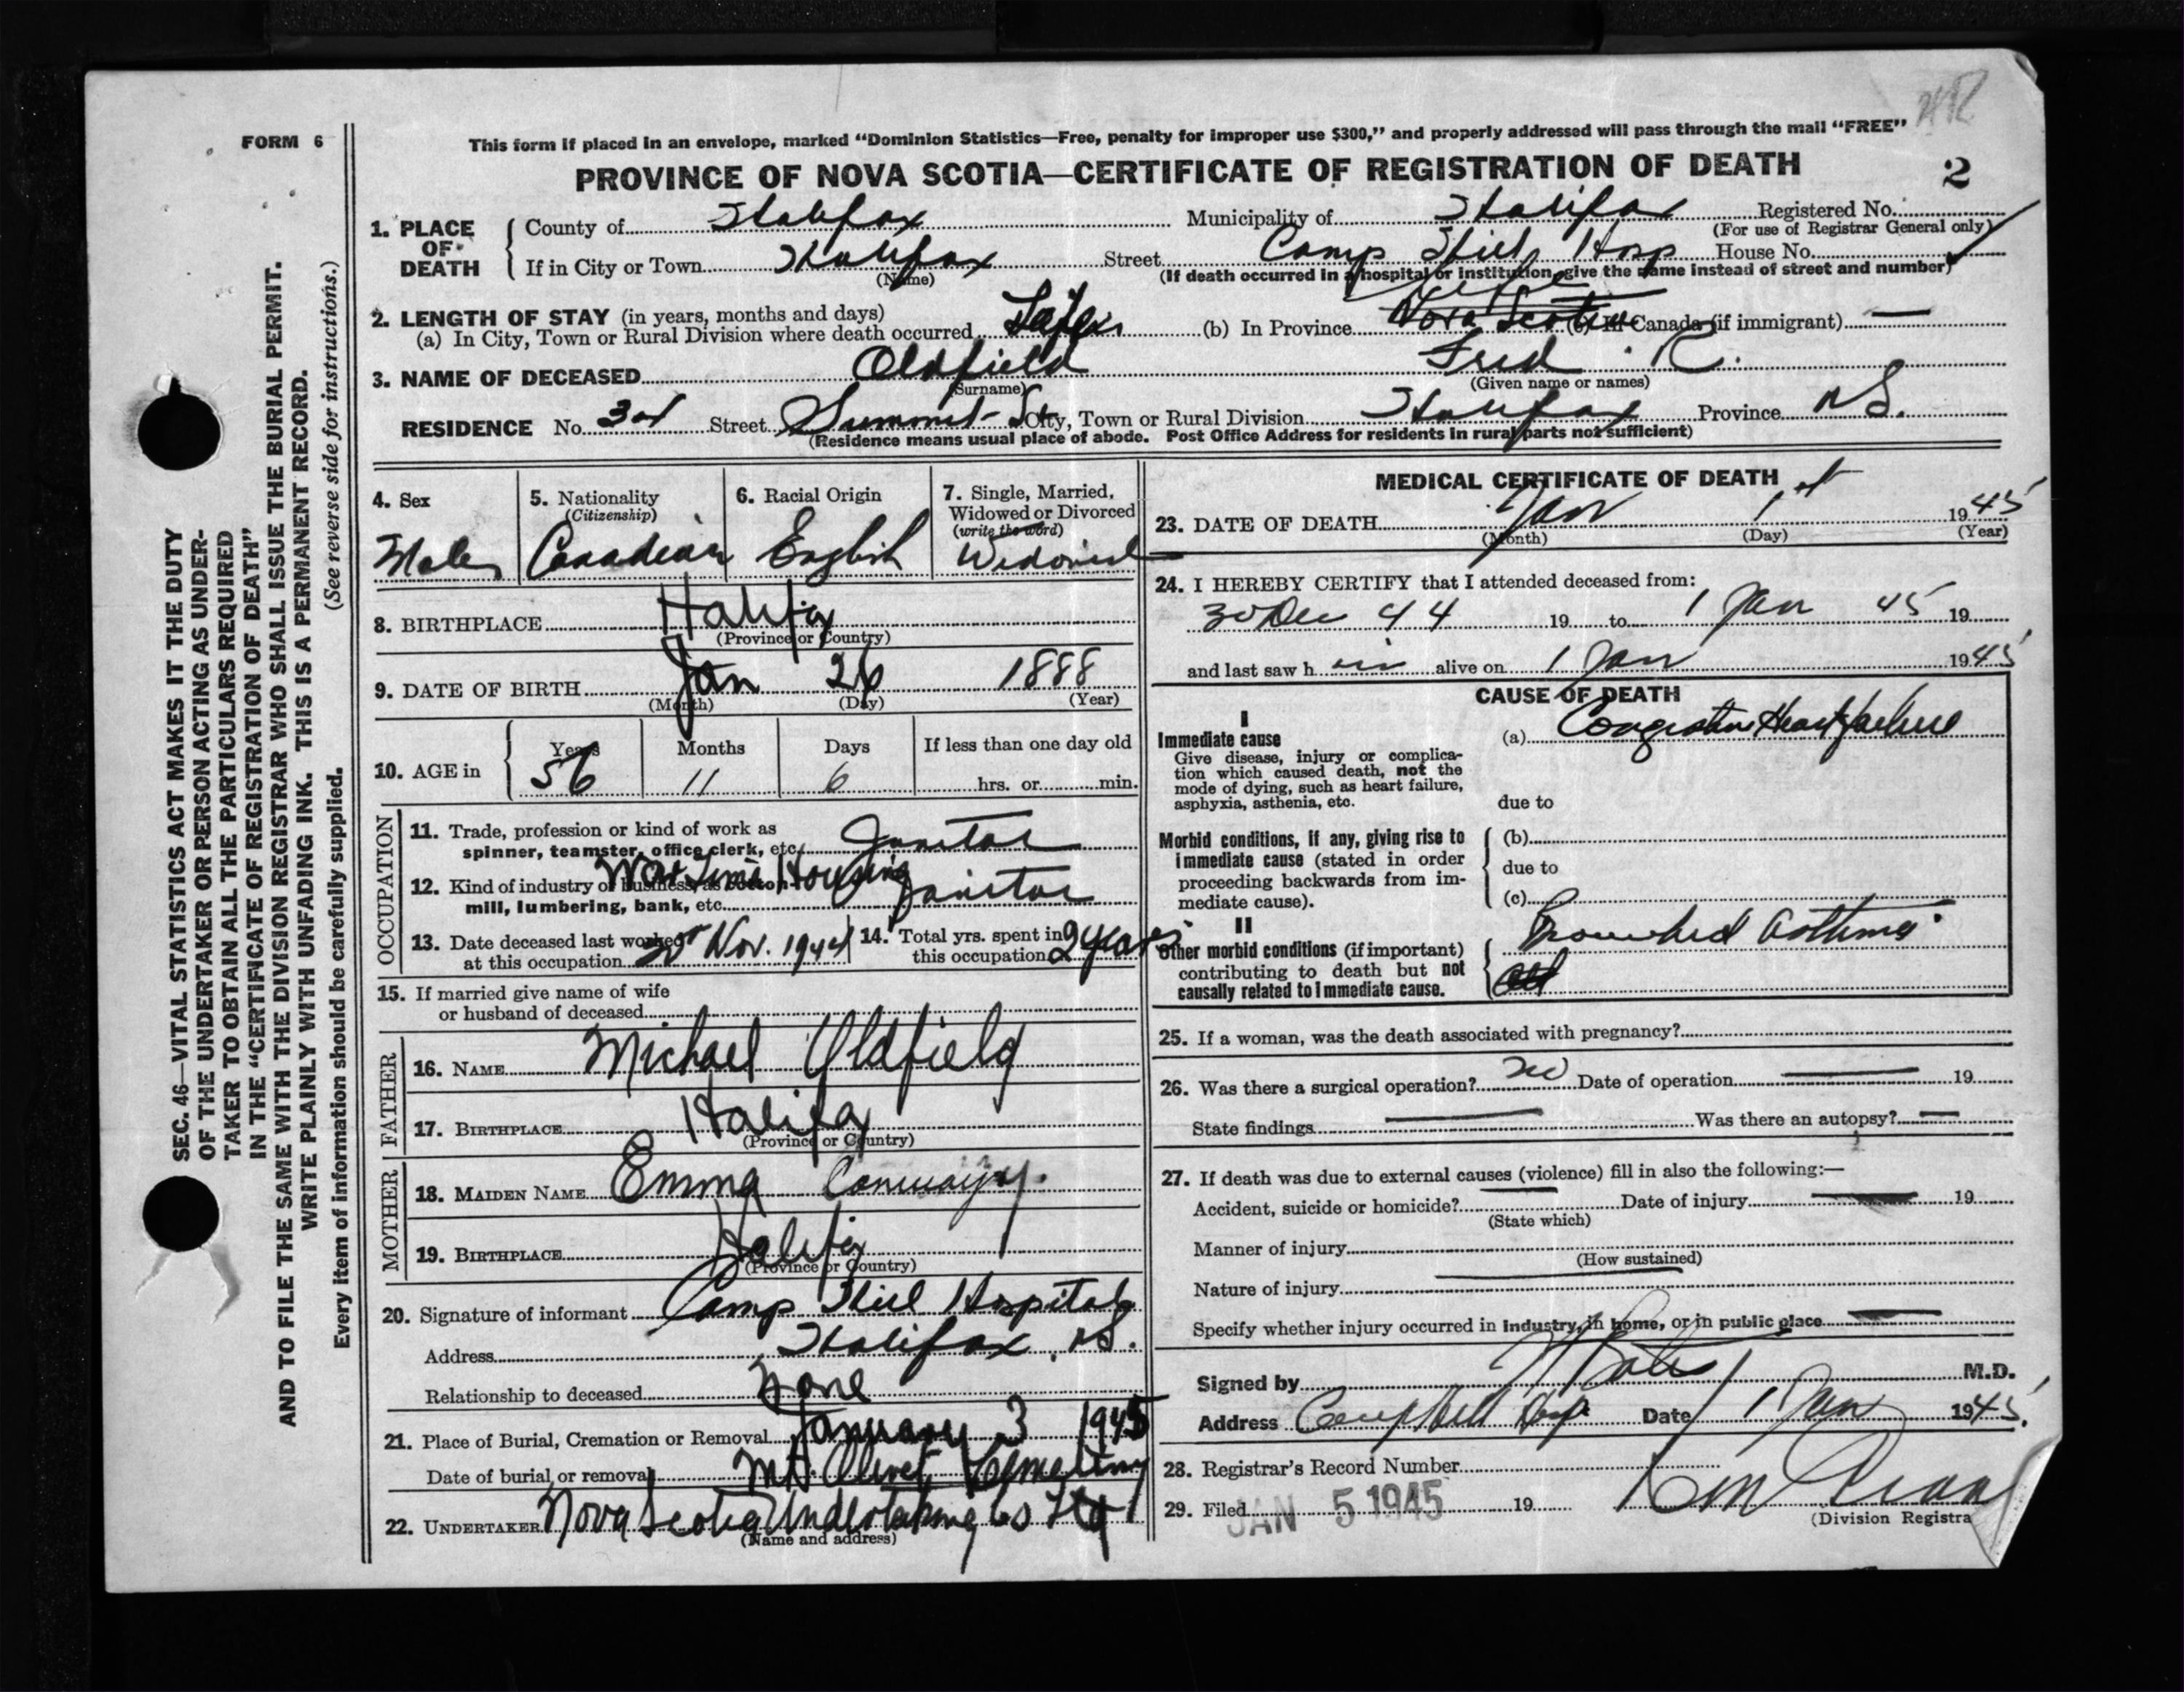 FORM 6
This form if placed in an envelope, marked “Dominion Statistics—Free, penalty for improper use $300,” and properly addressed will pass through the mail “FREE”
PROVINCE OF NOVA SCOTIA—CERTIFICATE OF REGISTRATION OF DEATH
2
1. PLACE OF DEATH
County of Halifax Municipality of Halifax Registered No.
(For use of Registrar General only)
If in City or Town Halifax Street Camp Hill Hosp House No.
(Name) (If death occurred in a hospital or institution, give the name instead of street and number)
2. LENGTH OF STAY (in years, months and days)
(a) In City, Town or Rural Division where death occurred Life (b) In Province Life Nova Scotia (c) In Canada (if immigrant) —
3. NAME OF DECEASED Oldfield Fred C.
(Surname) (Given name or names)
RESIDENCE No. Street Summit St City, Town or Rural Division Halifax Province NS.
(Residence means usual place of abode. Post Office Address for residents in rural parts not sufficient)
4. Sex
Male
5. Nationality
(Citizenship)
Canadian
6. Racial Origin
English
7. Single, Married,
Widowed or Divorced
(write the word)
Widowed
8. BIRTHPLACE Halifax
(Province or Country)
9. DATE OF BIRTH Jan 26 1888
(Month) (Day) (Year)
10. AGE in
Years Months Days If less than one day old
56 11 6 hrs. or min.
OCCUPATION
11. Trade, profession or kind of work as
spinner, teamster, office clerk, etc. Janitor
War Time Housing
12. Kind of industry or business, as cotton
mill, lumbering, bank, etc. Janitor
13. Date deceased last worked
at this occupation Nov. 1944
14. Total yrs. spent in
this occupation 2 years
15. If married give name of wife
or husband of deceased
FATHER
16. NAME Michael Oldfield
17. BIRTHPLACE Halifax
(Province or Country)
MOTHER
18. MAIDEN NAME Emma Conway
19. BIRTHPLACE Halifax
(Province or Country)
20. Signature of informant Camp Hill Hospital
Address Halifax, NS.
Relationship to deceased None
21. Place of Burial, Cremation or Removal January 3 1945
Date of burial or removal Mt. Olivet Cemetery
22. UNDERTAKER Nova Scotia Undertaking Co Ltd
(Name and address)
MEDICAL CERTIFICATE OF DEATH
23. DATE OF DEATH Jan 1st 1945
(Month) (Day) (Year)
24. I HEREBY CERTIFY that I attended deceased from:
30 Dec 44 19 to 1 Jan 45 19
and last saw h im alive on 1 Jan 1945
CAUSE OF DEATH
I
Immediate cause
Give disease, injury or complica-
tion which caused death, not the
mode of dying, such as heart failure,
asphyxia, asthenia, etc.
(a) Congestive Heart failure
due to
Morbid conditions, if any, giving rise to
immediate cause (stated in order
proceeding backwards from im-
mediate cause).
(b)
due to
(c)
II
Other morbid conditions (if important)
contributing to death but not
causally related to immediate cause.
Bronchial Asthma
25. If a woman, was the death associated with pregnancy?
26. Was there a surgical operation? no Date of operation — 19
State findings — Was there an autopsy? —
27. If death was due to external causes (violence) fill in also the following:—
Accident, suicide or homicide? — Date of injury — 19
(State which)
Manner of injury
(How sustained)
Nature of injury
Specify whether injury occurred in industry, in home, or in public place —
Signed by M.D.
Address Camp Hill Hosp Date 1 Jan 1945.
28. Registrar’s Record Number
29. Filed JAN 5 1945 19
(Division Registra
SEC. 46—VITAL STATISTICS ACT MAKES IT THE DUTY
OF THE UNDERTAKER OR PERSON ACTING AS UNDER-
TAKER TO OBTAIN ALL THE PARTICULARS REQUIRED
IN THE “CERTIFICATE OF REGISTRATION OF DEATH”
AND TO FILE THE SAME WITH THE DIVISION REGISTRAR WHO SHALL ISSUE THE BURIAL PERMIT.
WRITE PLAINLY WITH UNFADING INK. THIS IS A PERMANENT RECORD.
Every item of information should be carefully supplied. (See reverse side for instructions.)